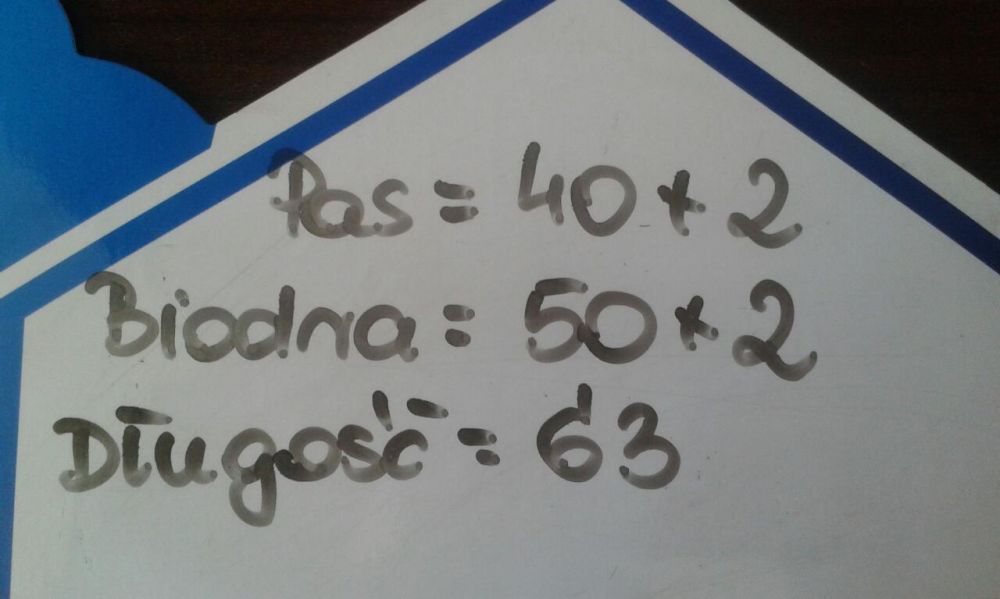 Pas = 40 * 2
Biodna = 50 * 2
Długość = 63